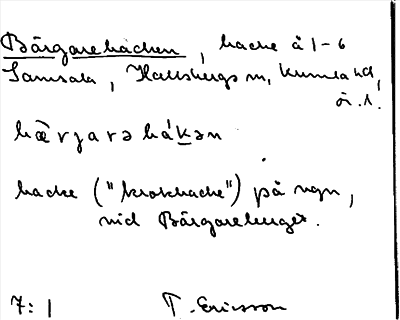 Bärgarebacken, backe å 1-6
Samsala, Hallsbergs sn, Kumla hd,
ör. l.
bæ̀rjarəbákən
backe ("krokbacke") på vgn,
vid Bärgareberget.
7:1 T. Ericsson